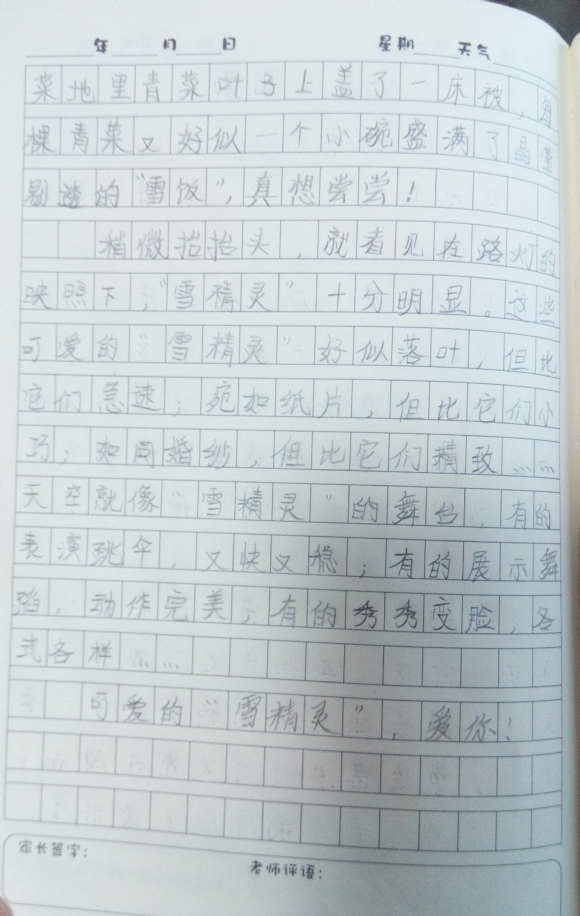 年 月 日 星期 天气
菜地里青菜叶子上盖了一床被，每
棵青菜又好似一个小碗盛满了晶莹
剔透的“雪饭”，真想尝尝！
稍微抬抬头，就看见在路灯的
映照下，“雪精灵”十分明显。这些
可爱的“雪精灵”好似落叶，但比
它们急速；宛如纸片，但比它们小
巧；如同婚纱，但比它们精致……
天空就像“雪精灵”的舞台，有的
表演跳伞，又快又稳；有的展示舞
蹈，动作完美；有的秀秀变脸，各
式各样……
可爱的“雪精灵”，爱你！
家长签字：
老师评语：